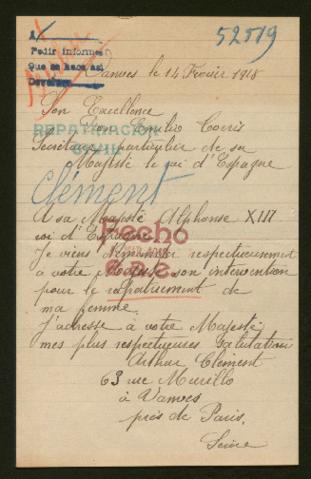 52519
A/
Pedir informes
Que se hace así
Vanves le 14 Fevrier 1918
Son Excellence
Don Emilio
REPATRIACION
CIVIL
Secrétaire particulier de sa
Majesté le roi d'Espagne
Clément
A sa Majesté Alphonse XIII
roi d'Espagne
Hecho
Je viens demander respectueusement
à votre Majesté son intervention
pour le rapatriement de
ma femme.
J'adresse à votre Majesté,
mes plus respectueuses salutations
Arthur Clément
63 rue Murillo
à Vanves
près de Paris.
Seine